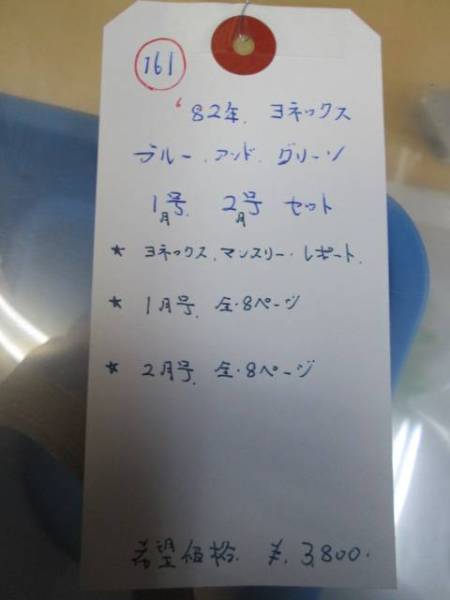 161
'82年. ヨネックス
ブルー.アンド.グリーン
1月号. 2月号 セット
★ ヨネックス.マンスリー・レポート.
★ 1月号. 全・8ページ
★ 2月号. 全・8ページ
希望価格. ¥.3,800.